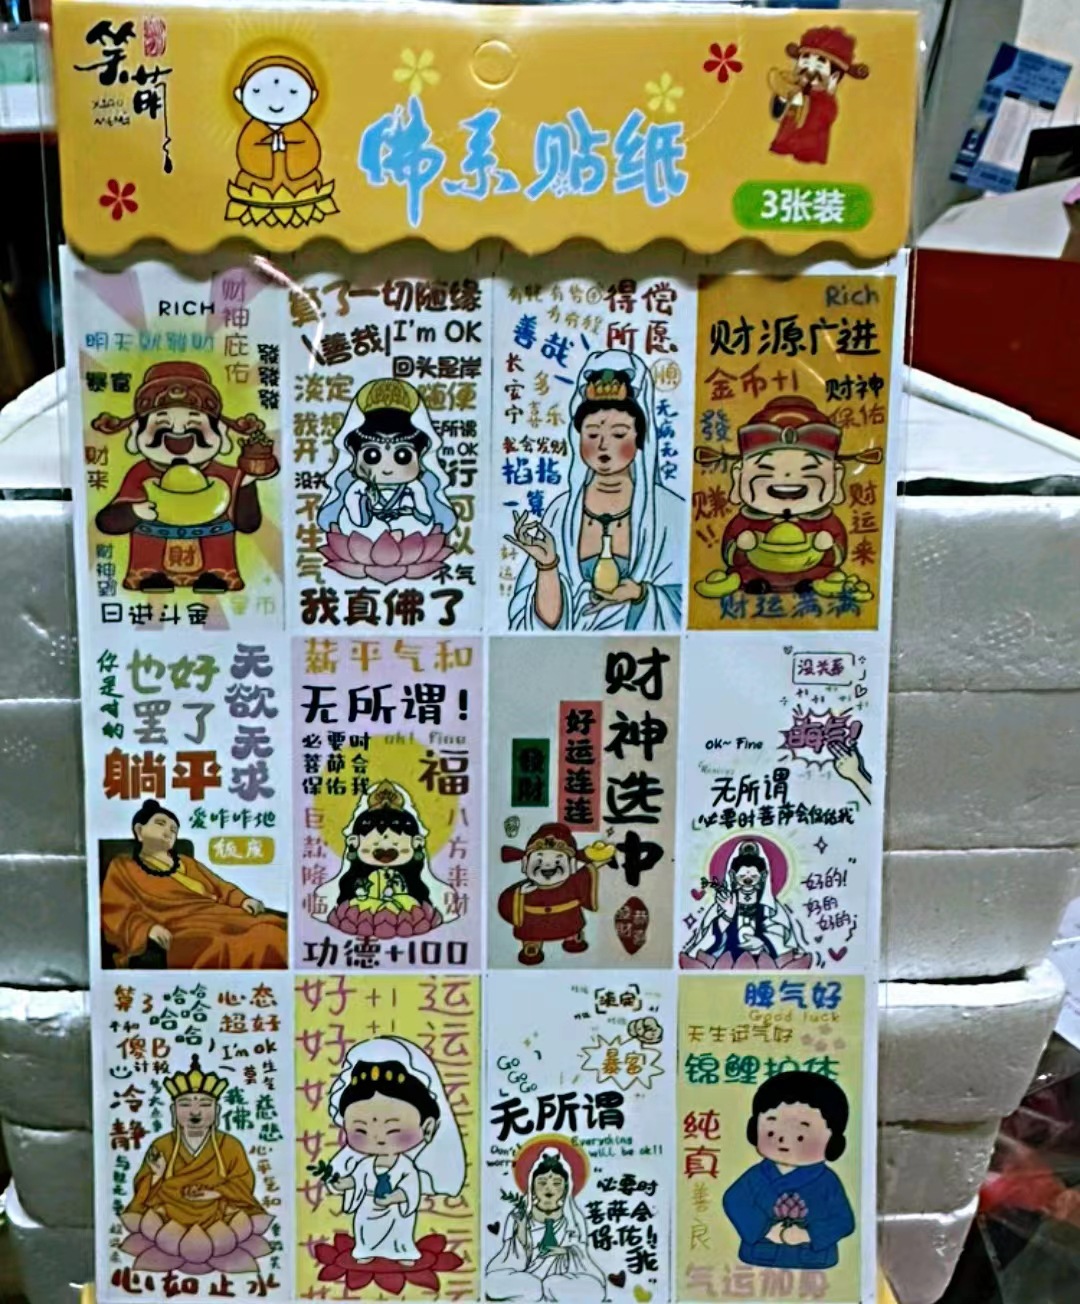 笑萌
XIAO MENG
佛系贴纸
3张装
RICH
财神庇佑
發發發
暴富
财来
財
财神到
日进斗金
金币
算了一切随缘
善哉
I'm OK
回头是岸
淡定
随便
无所谓
I'm OK
不生气
行
可以
不气
我真佛了
得偿所愿
善哉
顺
长安宁
多喜乐
无病无灾
我会发财
掐指一算
Rich
财源广进
金币+1
财神保佑
發财
赚!!
财运来
财运满满
你是对的
也好
罢了
无欲无求
躺平
爱咋咋地
薪平气和
无所谓!
必要时菩萨会保佑我
ok! fine
福
巨款降临
八方来财
功德+100
财神选中
好运连连连
發財
没关系
晦气!
OK~ Fine
无所谓
「必要时菩萨会保佑我」
"好的!
好的
好的"
算了
哈哈哈哈哈
心态超好
I'm OK
冷静
我佛慈悲
心平气和
心如止水
好+1运
淡定
暴富
GO GO GO
无所谓
Don't worry
Everything will be ok!!
"必要时菩萨会保佑我!!"
運气好
Good luck
天生运气好
锦鲤护体
純真
善良
气运加身